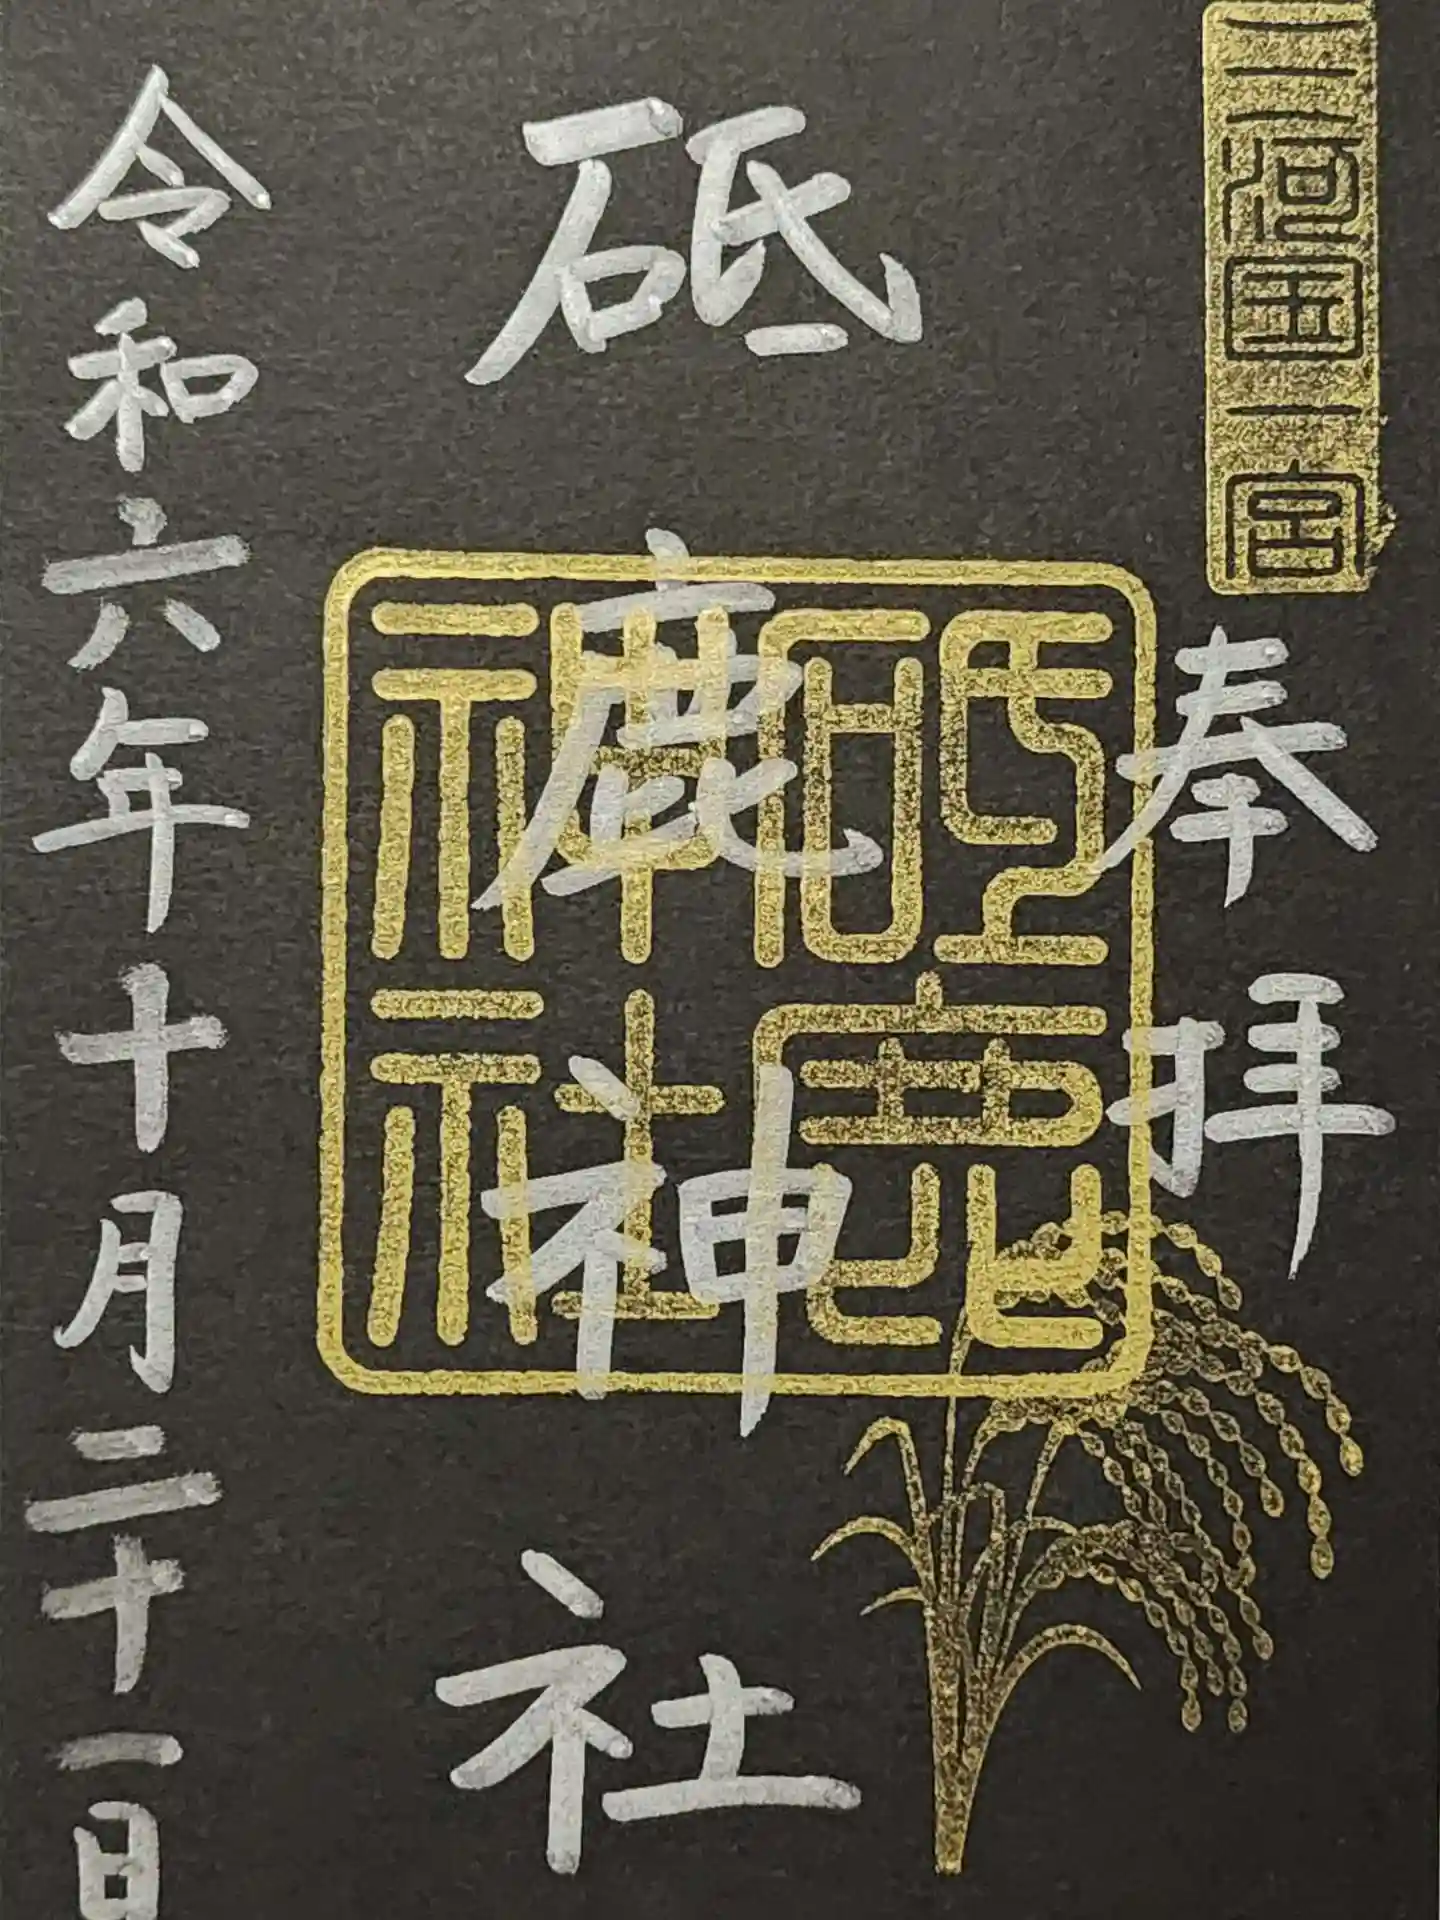 三河國一宮
奉拝
砥鹿神社
砥鹿神社
令和六年十月二十一日